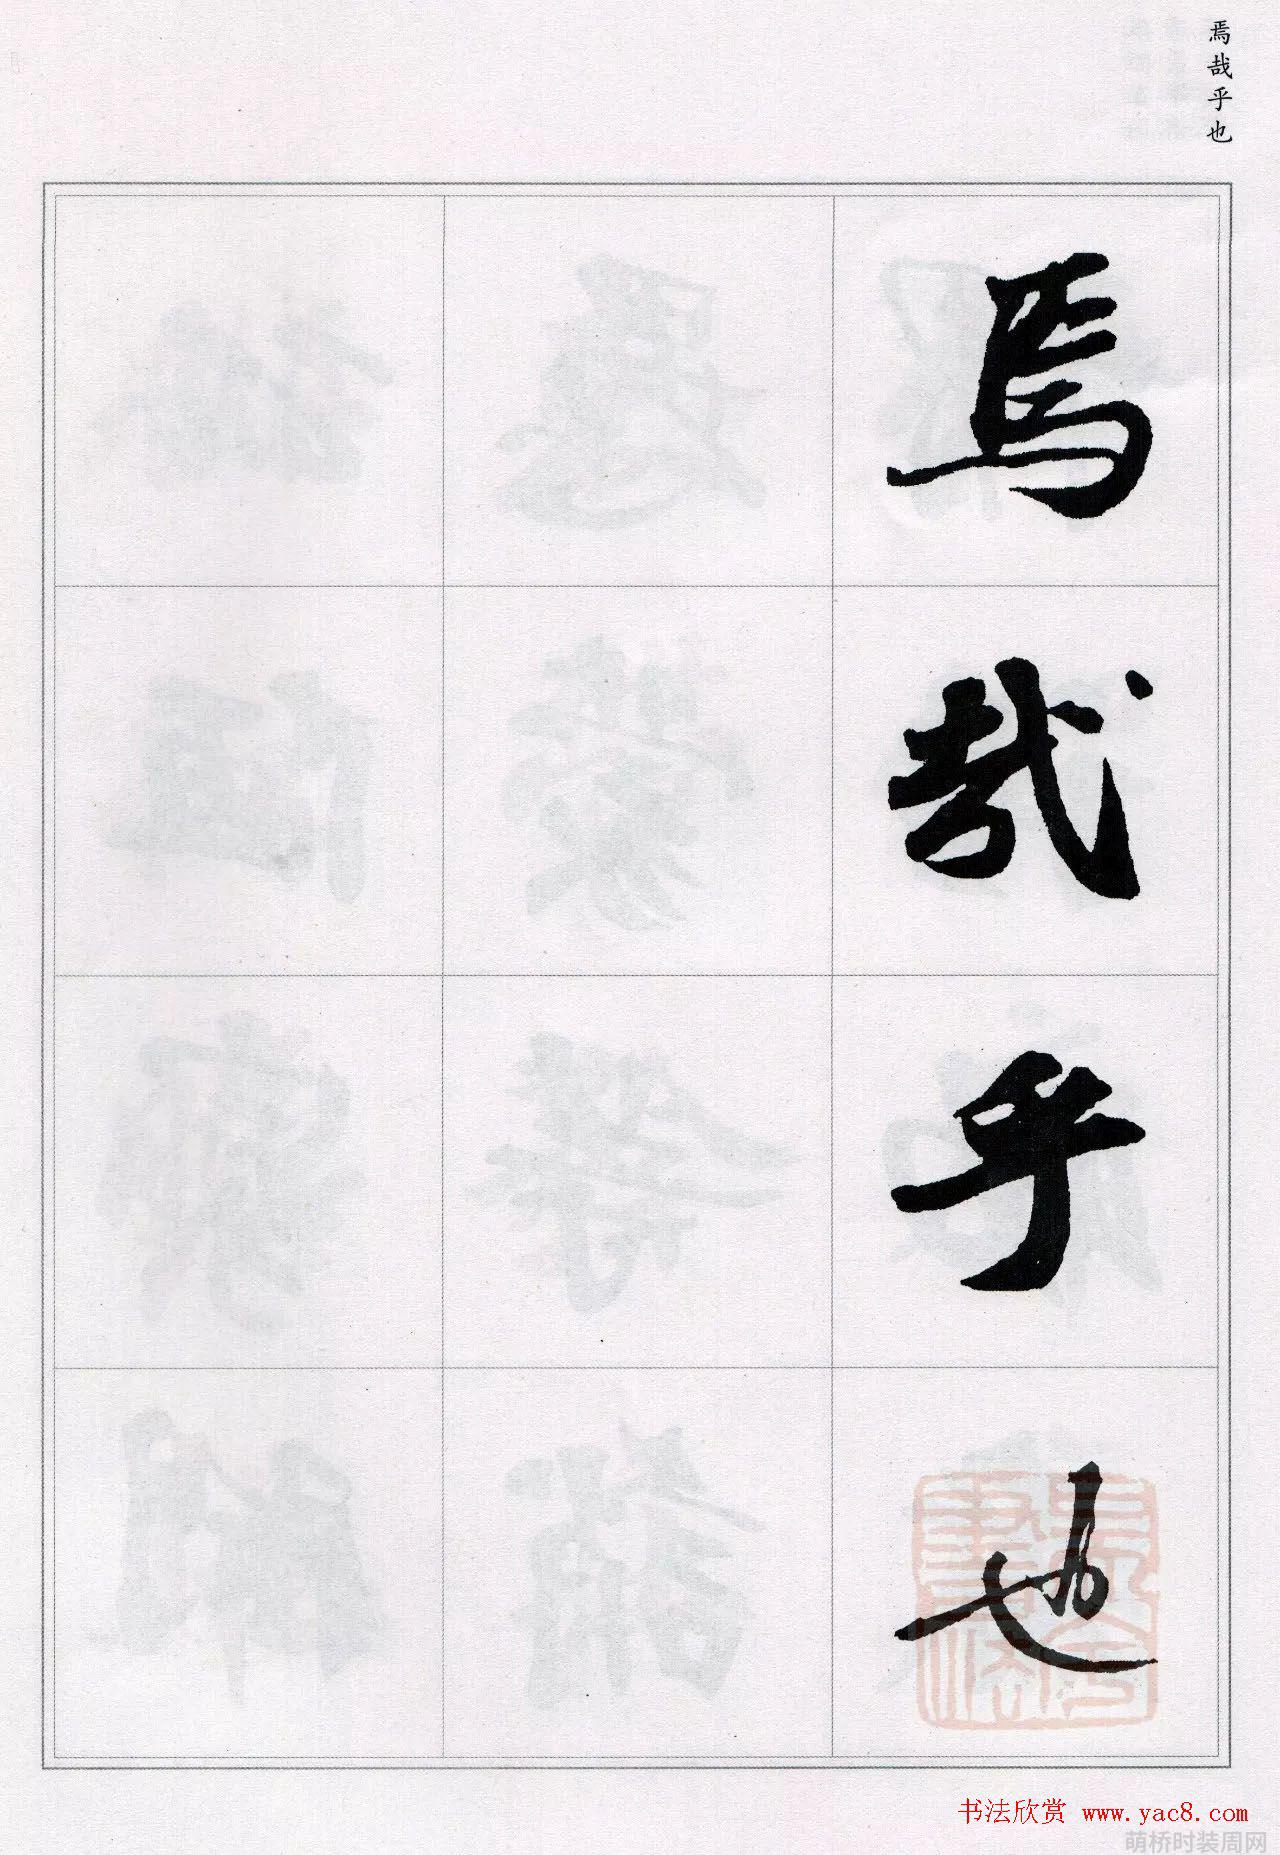 焉哉乎也
焉
哉
乎
也
书法欣赏 www.yac8.com
萌桥时装周网